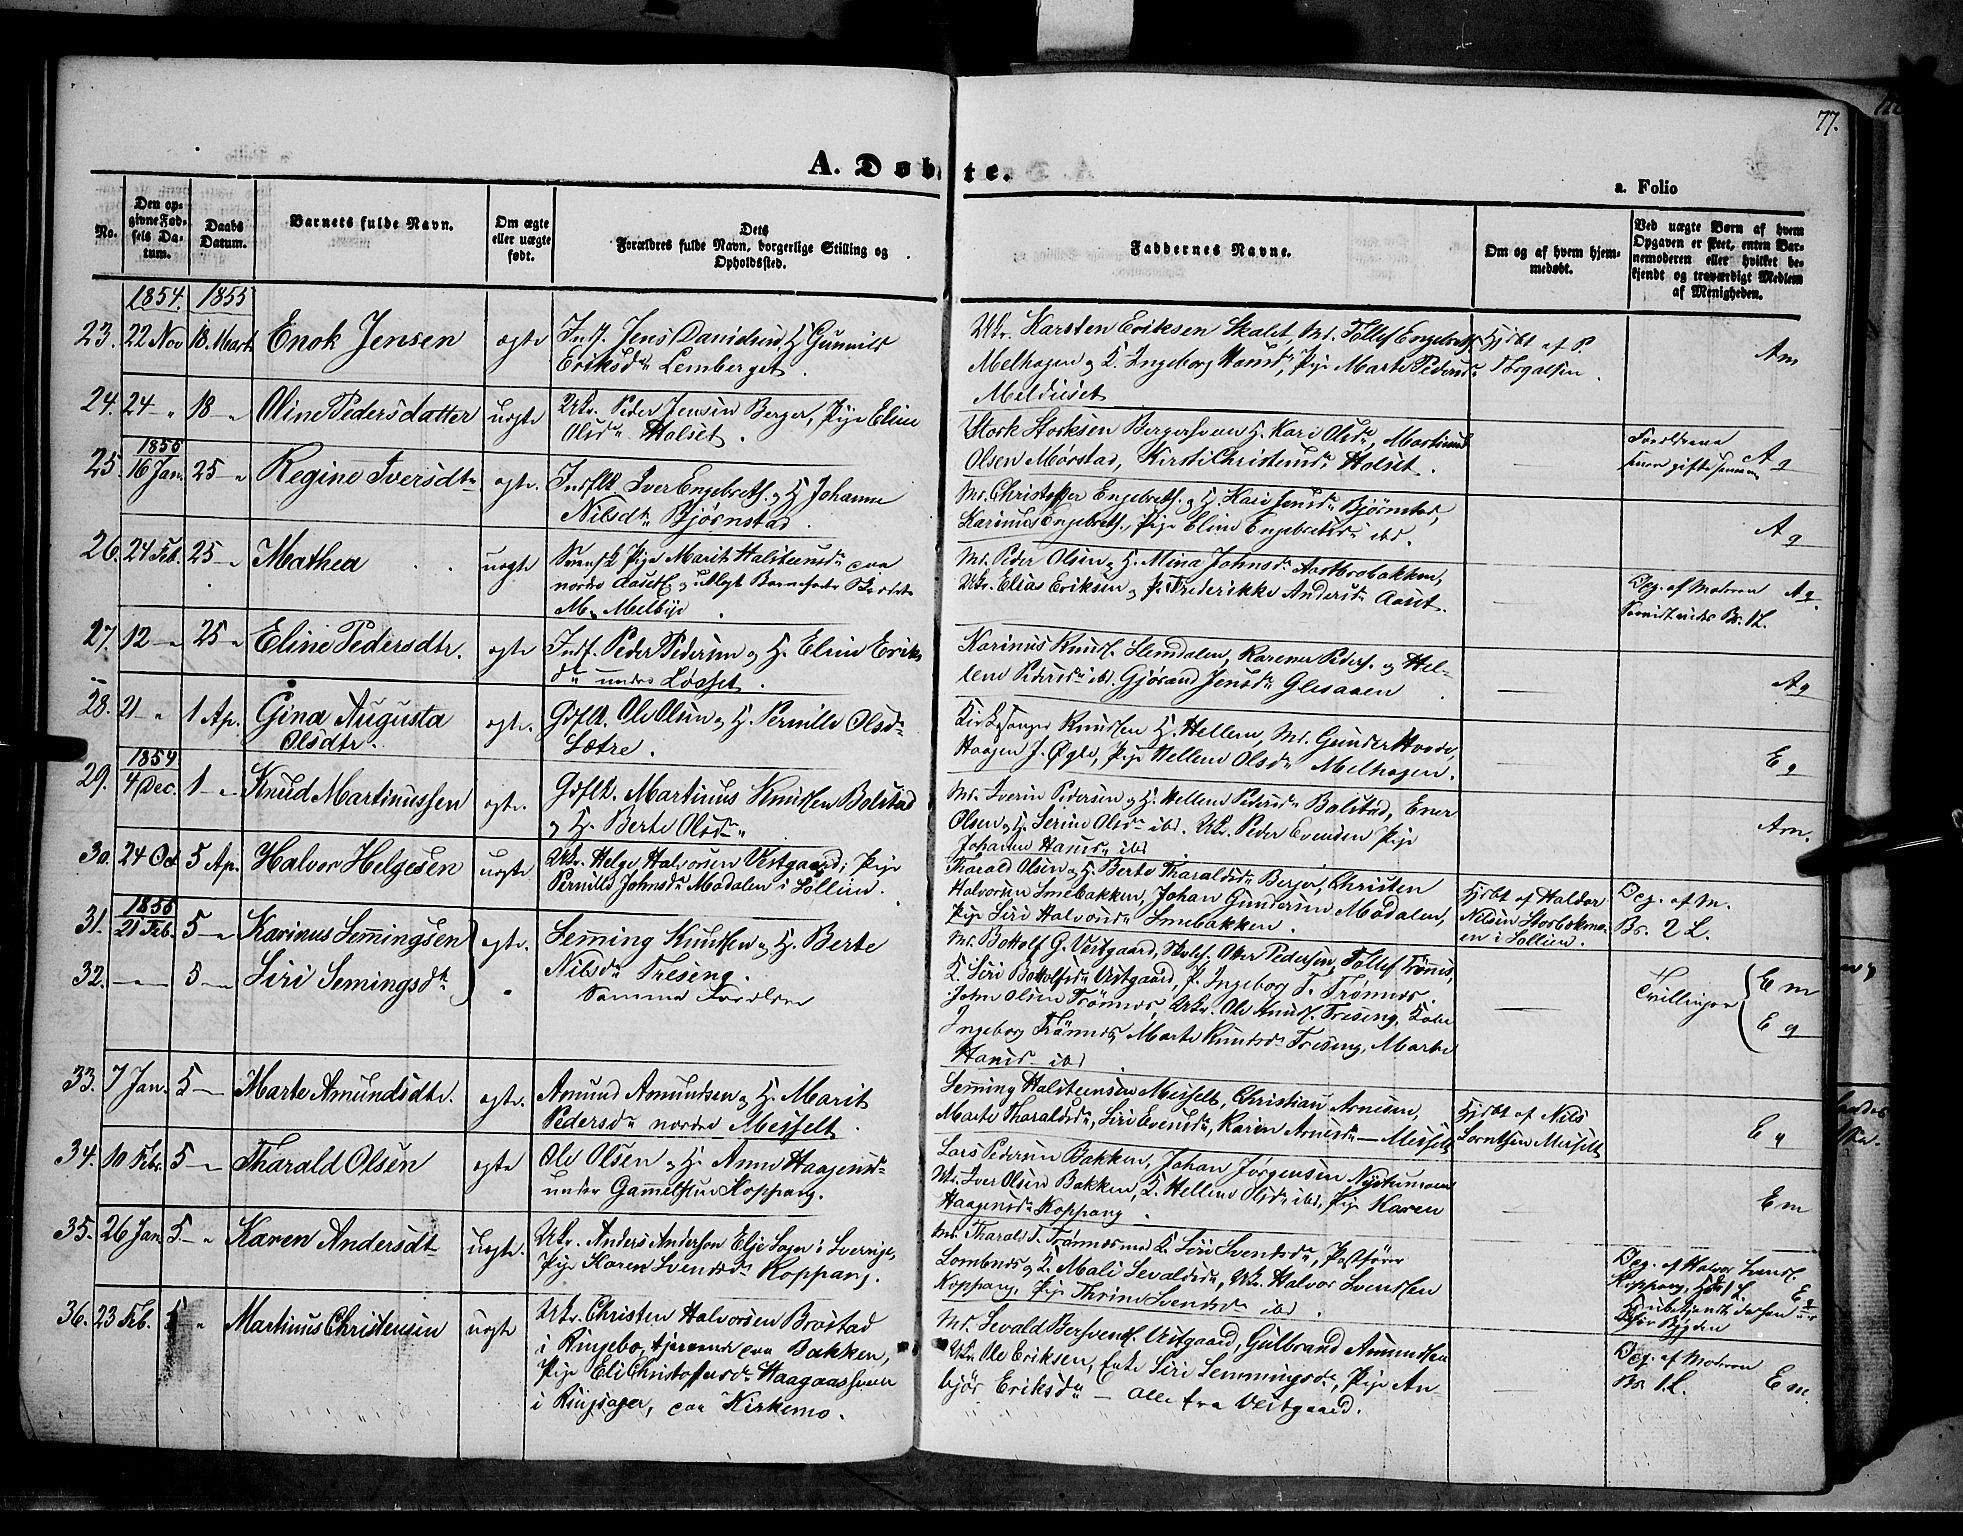 77.
A. Døbte.
a. Folio
No.
Den op-
givne Fød-
sels Da-
tum.
Daabs
Datum.
Barnets fulde Navn.
Om ægte
eller uægte
født.
Dets
Forældres fulde Navn, borgerlige Stilling og
Opholdssted.
Faddernes Navne.
Om og af hvem hjem-
medøbt.
Ved uægte Børn af hvem
Opgaven er skeet, enten Bar-
nemoderen eller hvilket be-
kjendt og troværdigt Medlem
af Menigheden.
1854. 1855
23. 22 Nov 18. Marts Enok Jensen ægte Inds. Jens Danielsen, H Gunnild
Eriksdr Lemberget.
Uk. Karsten Eriksen Skalet, Md. Tollef Engebrets.
Melhagen og K. Ingeborg Hansdr, Pige Marte Pedersdr
Hjdbt af P.
Am
24. 24 " 18 " Oline Pedersdatter uægte Uk. Peder Jensen Berger, Pige Eline
Olsdr Halset.
Stork Storksen Bergersveen H. Kari Olsdr, Martinus
Olsen Mørstad, Kirsti Christensdr Halset.
Forældrene
senere gifte sammen
Ag
1855
25. 16 Jan. 25 " Regine Iversdtr ægte. Indflt Iver Engebreths. og H Johanne
Nilsdtr Bjørnstad.
Md. Christoffer Engebreths. og H. Kari Jensdr Bjørnstad,
Karinus Engebreths., Pige Eline Engebretsdr ibd.
Ag
26. 24 Feb. 25 " Mathea uægte Svensk Pige Marit Halsteensdr paa
nordre Aaset, og udlagt Barnefader
M. Melbye.
Md. Peder Olsen og H. Mina Johnsdr Aastbrobakken,
Uk. Elias Eriksen og P. Frederikke Andersdr Aaset.
Deg. af Moderen
Bs. 1 L.
Ag.
27. 12 " 25 " Eline Pedersdtr. ægte Inds. Peder Pedersen og H. Eline Eriks-
dr under Løsset.
Karinus Knuds. Stemdalen, Karener Peders. og Hel-
lene Pedersdr ibd. Gjørand Jensdr Glesaaen
Ag
28. 21 " 1 Ap. Gina Augusta
Olsdtr. ægte. Gdflt. Ole Olsen og H. Pernille Olsdr
Sætre.
Kirkesanger Knudsen H. Hellene, Md. Gunder Hovde,
Haagen J. Øgle, Pige Hellene Olsdr Melhagen.
Eg
1854
29. 4 Dec. 1 " Knud Martinussen ægte. Gdflk. Martinus Knudsen Bolstad
og H. Berte Olsdr
Md. Iverin Pedersen og H. Hellene Pedersdr Bolstad, Ener
Olsen og H. Serine Olsdr ibd. Uk. Peder Evenden Pige
Johanne Hansdr ibd
Am.
30. 24 Oct 5 Ap. Halvor Helgesen uægte Uk. Helge Halvorsen Vestgaard; Pige
Pernille Johnsdr Mødalen i Sollien.
Tharald Olsen og H. Berte Tharaldsdr Berger, Christen
Halvorsen Smebakken, Johan Gundersen Mødalen,
Pige Siri Halvorsdr Smebakken.
Hjdbt af Haldor
Nilsen Storbækmo-
en i Sollien.
Deg. af M.
Bs. 2 L.
1855
31. 21 Feb. 5 " Karinus Semingsen ægte. Seming Knudsen og H. Berte
Nilsdr Treseng.
Md. Bottolf G. Vestgaard, Skolel. Oker Pedersen, Tollef Trønnes,
K. Siri Bottolfsdr Vestgaard, P. Ingeborg T. Trønnes.
Em
32. " 5 " Siri Semingsdtr Samme Forældre
John Olsen Trønnes, Uk. Ole Knuds. Treseng, Kone
Ingeborg Trønnes, Marte Knudsdr Treseng, Marte
Hansdr ibd.
Tvillinger
Eg
33. 7 Jan. 5 " Marte Amundsdtr. ægte. Amund Amundsen og H. Marit
Pedersdr nordre Messelt.
Seming Halsteensen Messelt, Christian Arnesen,
Marte Tharaldsdr, Siri Evensdr, Karen Arnesdr — Messelt
Hjdbt af Nils
Lorentsen Messelt
Eg
34. 10 Febr. 5 " Tharald Olsen ægte Ole Olsen og H. Anne Haagensdr
under Gammelstuen Koppang.
Lars Pedersen Bakken, Johan Jørgensen Nystumoen
Uk. Iver Olsen Bakken, K. Hellene Olsdr ibd, Pige Karen
Haagensdr Koppang.
Em
35. 26 Jan. 5 " Karen Andersdtr uægte. Uk. Anders Anderson Elje Sogn i Sverige,
Pige Karen Svendsdr Koppang.
Md. Tharald T. Trønnesmo, K. Siri Svendsdr, Postfører
Lombnes og K. Mali Sevaldsdr, Uk. Halvor Svendsen
Koppang, Pige Thrine Svendsdr ibd.
Deg. af Halvor Svends.
Koppang,
Eg
36. 23 Feb. 5 " Martinus Christensen uægte Uk. Christen Halvorsen Brostad
i Ringebo, tjenende paa Bakken,
Pige Eli Christoffersdr Haagaassveen
i Ringsager, paa Kirkemo.
Md. Sevald Bersvends. Vestgaard, Gulbrand Amundsen
Uk. Ole Eriksen, Enke Siri Semmingsdr, Pige An-
bjør Eriksdr — alle fra Vestgaard.
Deg. af Moderen
Bs. 1 L.
Em.